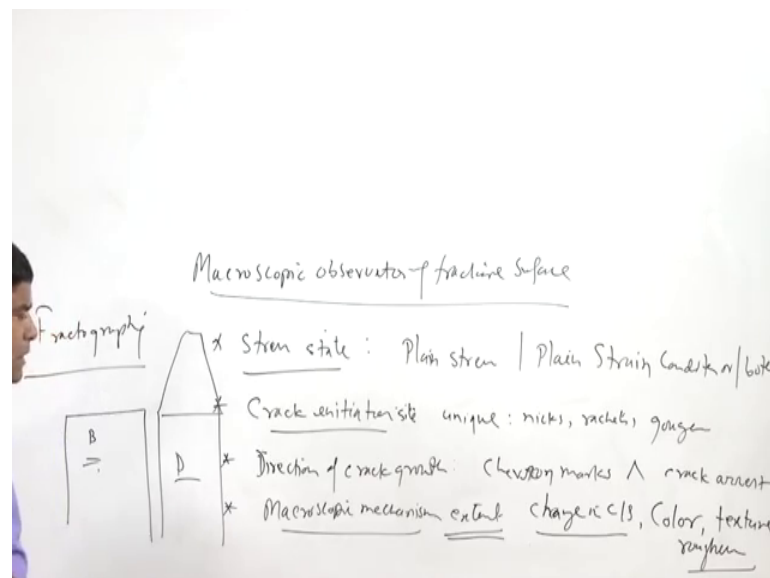 Macroscopic observation of fracture surface
Fractography
* Stress state : Plain stress | Plain Strain Condition / both
* Crack initiation site unique : nicks, rachets, gouges
B
D
* Direction of crack growth : Chevron marks ∧ crack arrest
* Macroscopic mechanism extent change in c/s, Color, texture
roughen